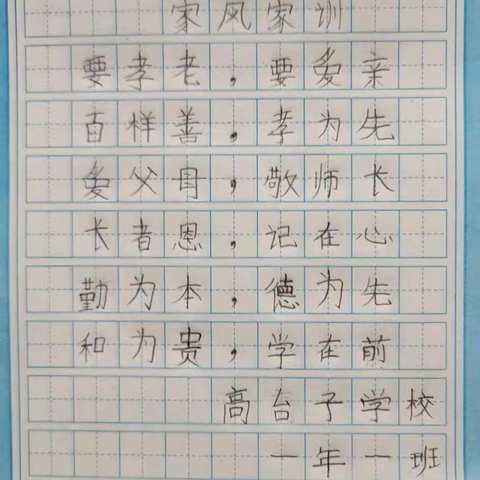 家风家训
要孝老，要爱亲
百样善，孝为先
爱父母，敬师长
长者恩，记在心
勤为本，德为先
和为贵，学在前
高台子学校
一年一班